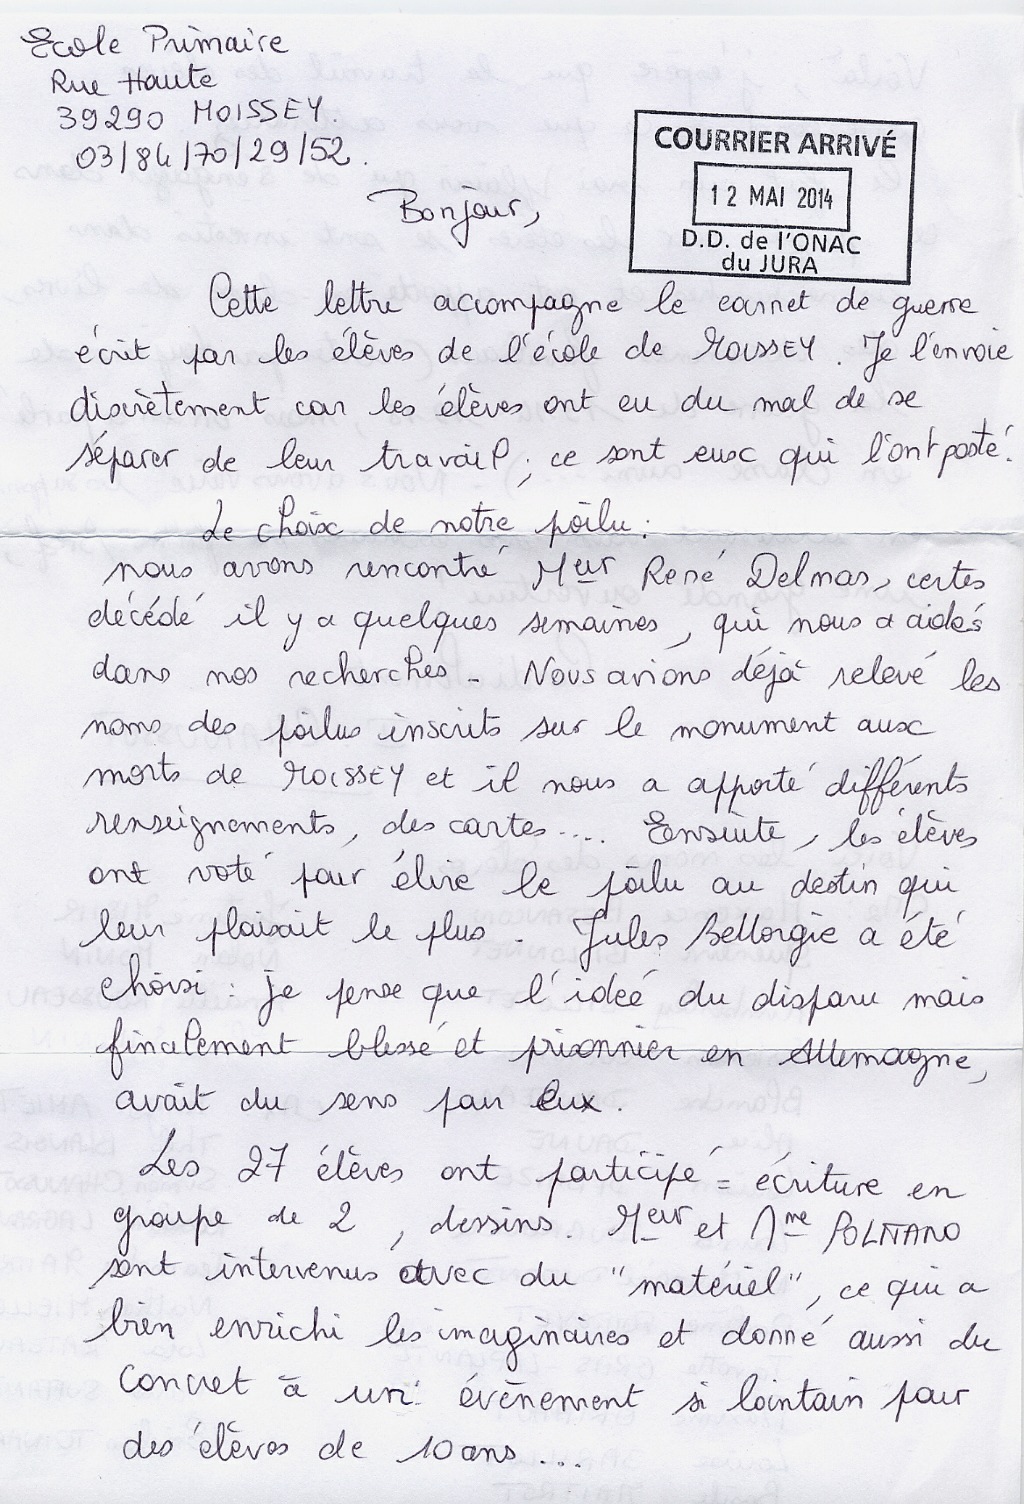 Ecole Primaire
Rue Haute
39290 MOISSEY.
03/84/70/29/52.
COURRIER ARRIVÉ
12 MAI 2014
D.D. de l'ONAC
du JURA
Bonjour,
Cette lettre accompagne le carnet de guerre
écrit par les élèves de l'école de MOISSEY. Je l'envoie
discrètement car les élèves ont eu du mal de se
séparer de leur travail, ce sont eux qui l'ont posté.
Le choix de notre poilu :
nous avons rencontré Meur René Delmas, certes
décédé il y a quelques semaines, qui nous a aidés
dans nos recherches - Nous avions déjà relevé les
noms des poilus inscrits sur le monument aux
morts de MOISSEY et il nous a apporté différents
renseignements, des cartes .... Ensuite, les élèves
ont voté pour élire le poilu au destin qui
leur plaisait le plus - Jules Bellorgie a été
choisi : je pense que l'idée du disparu mais
finalement blessé et prisonnier en Allemagne,
avait du sens pour eux.
Les 27 élèves ont participé = écriture en
groupe de 2, dessins. Meur et Mme
sont intervenus avec du "matériel", ce qui a
bien enrichi les imaginaires et donné aussi du
concret à un évènement si lointain pour
des élèves de 10 ans ...